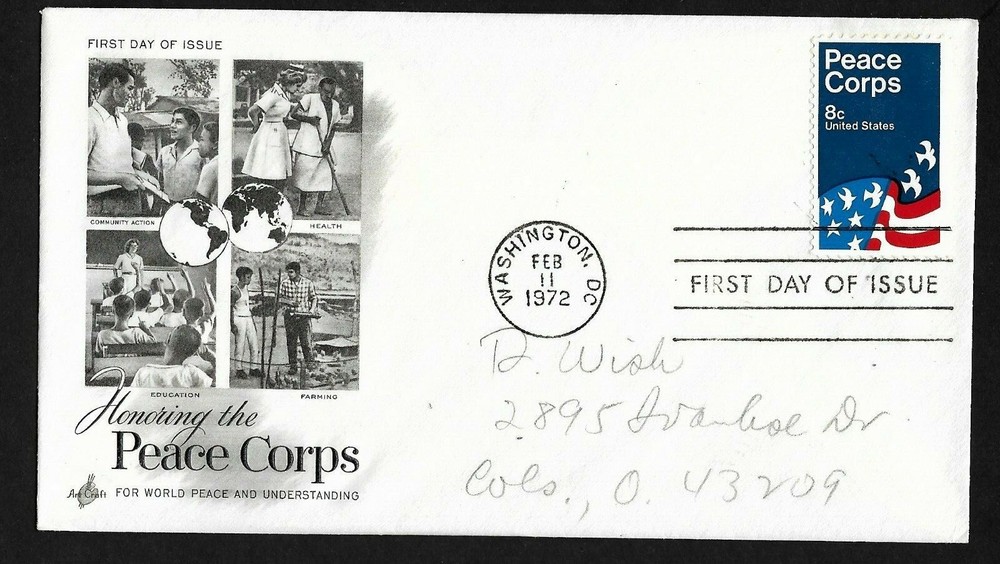 FIRST DAY OF ISSUE
COMMUNITY ACTION
HEALTH
EDUCATION
FARMING
Honoring the
Peace Corps
Art Craft
FOR WORLD PEACE AND UNDERSTANDING
Peace
Corps
8c
United States
WASHINGTON, DC
FEB
11
1972
FIRST DAY OF ISSUE
D. Wish
2895 Ivanhoe Dr.
Cols., O. 43209